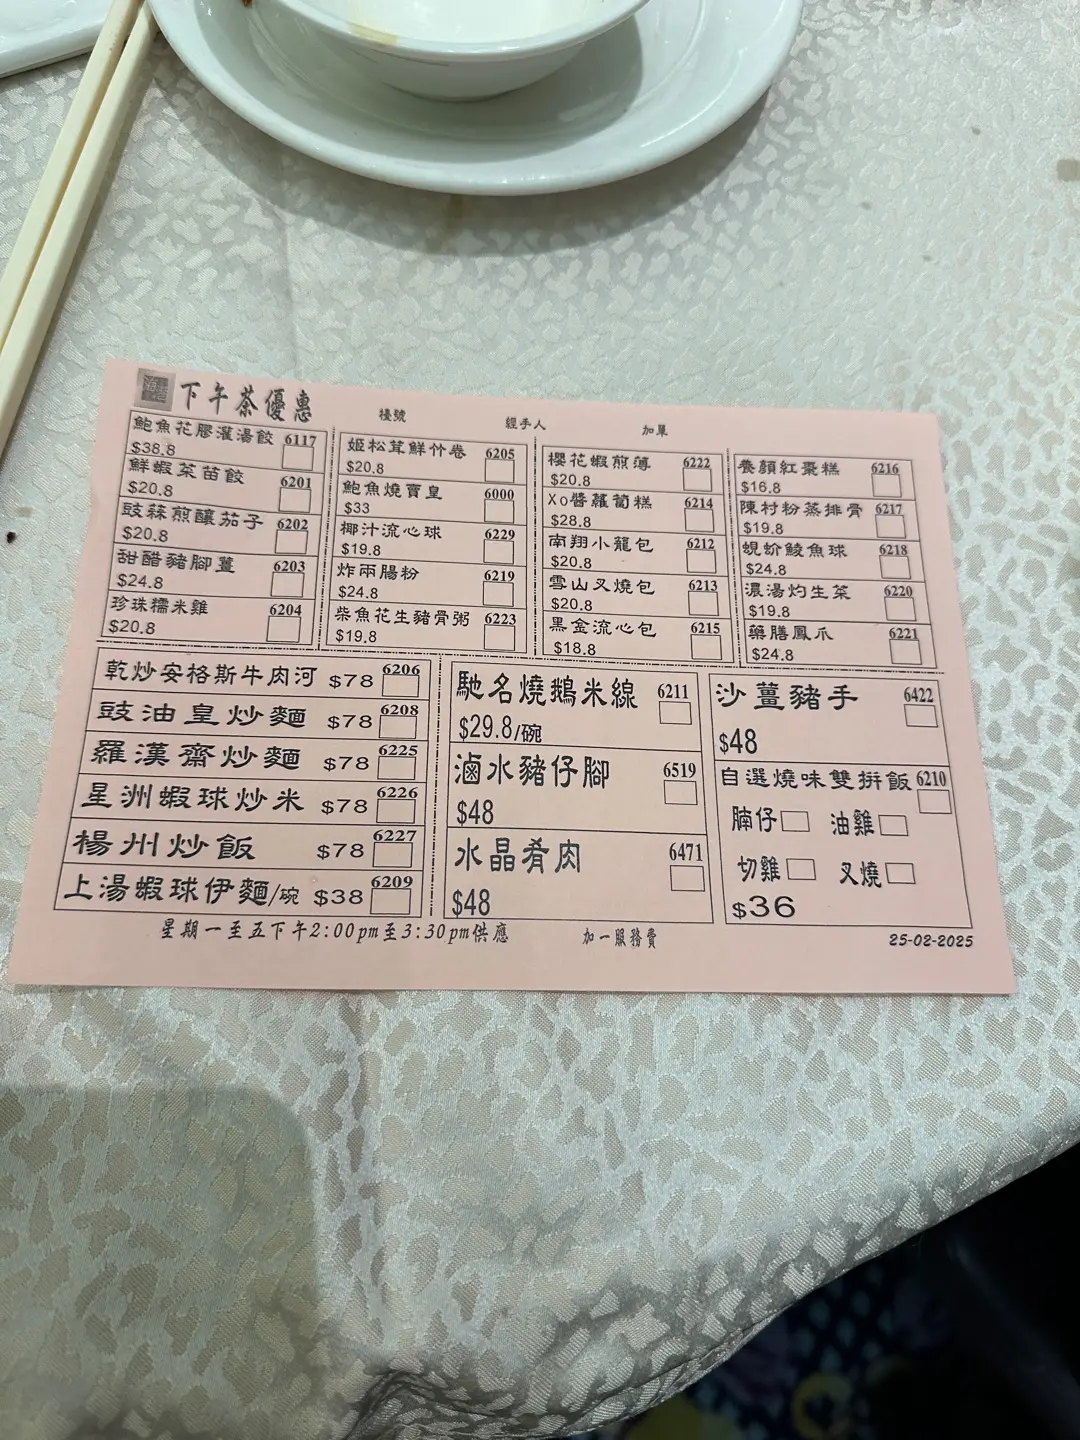 下午茶優惠
檯號 經手人 加單
鮑魚花膠灌湯餃 6117
$38.8
鮮蝦菜苗餃 6201
$20.8
豉蒜煎釀茄子 6202
$20.8
甜醋豬腳薑 6203
$24.8
珍珠糯米雞 6204
$20.8
姬松茸鮮竹卷 6205
$20.8
鮑魚燒賣皇 6000
$33
椰汁流心球 6229
$19.8
炸兩腸粉 6219
$24.8
柴魚花生豬骨粥 6223
$19.8
櫻花蝦煎薄 6222
$20.8
Xo醬蘿蔔糕 6214
$28.8
南翔小龍包 6212
$20.8
雪山叉燒包 6213
$20.8
黑金流心包 6215
$18.8
養顏紅棗糕 6216
$16.8
陳村粉蒸排骨 6217
$19.8
蜆蚧鯪魚球 6218
$24.8
濃湯灼生菜 6220
$19.8
藥膳鳳爪 6221
$24.8
乾炒安格斯牛肉河 $78 6206
豉油皇炒麵 $78 6208
羅漢齋炒麵 $78 6225
星洲蝦球炒米 $78 6226
楊州炒飯 $78 6227
上湯蝦球伊麵/碗 $38 6209
馳名燒鵝米線 6211
$29.8/碗
滷水豬仔腳 6519
$48
水晶肴肉 6471
$48
沙薑豬手 6422
$48
自選燒味雙拼飯 6210
腩仔 油雞
切雞 叉燒
$36
星期一至五下午2:00pm至3:30pm供應 加一服務費 25-02-2025